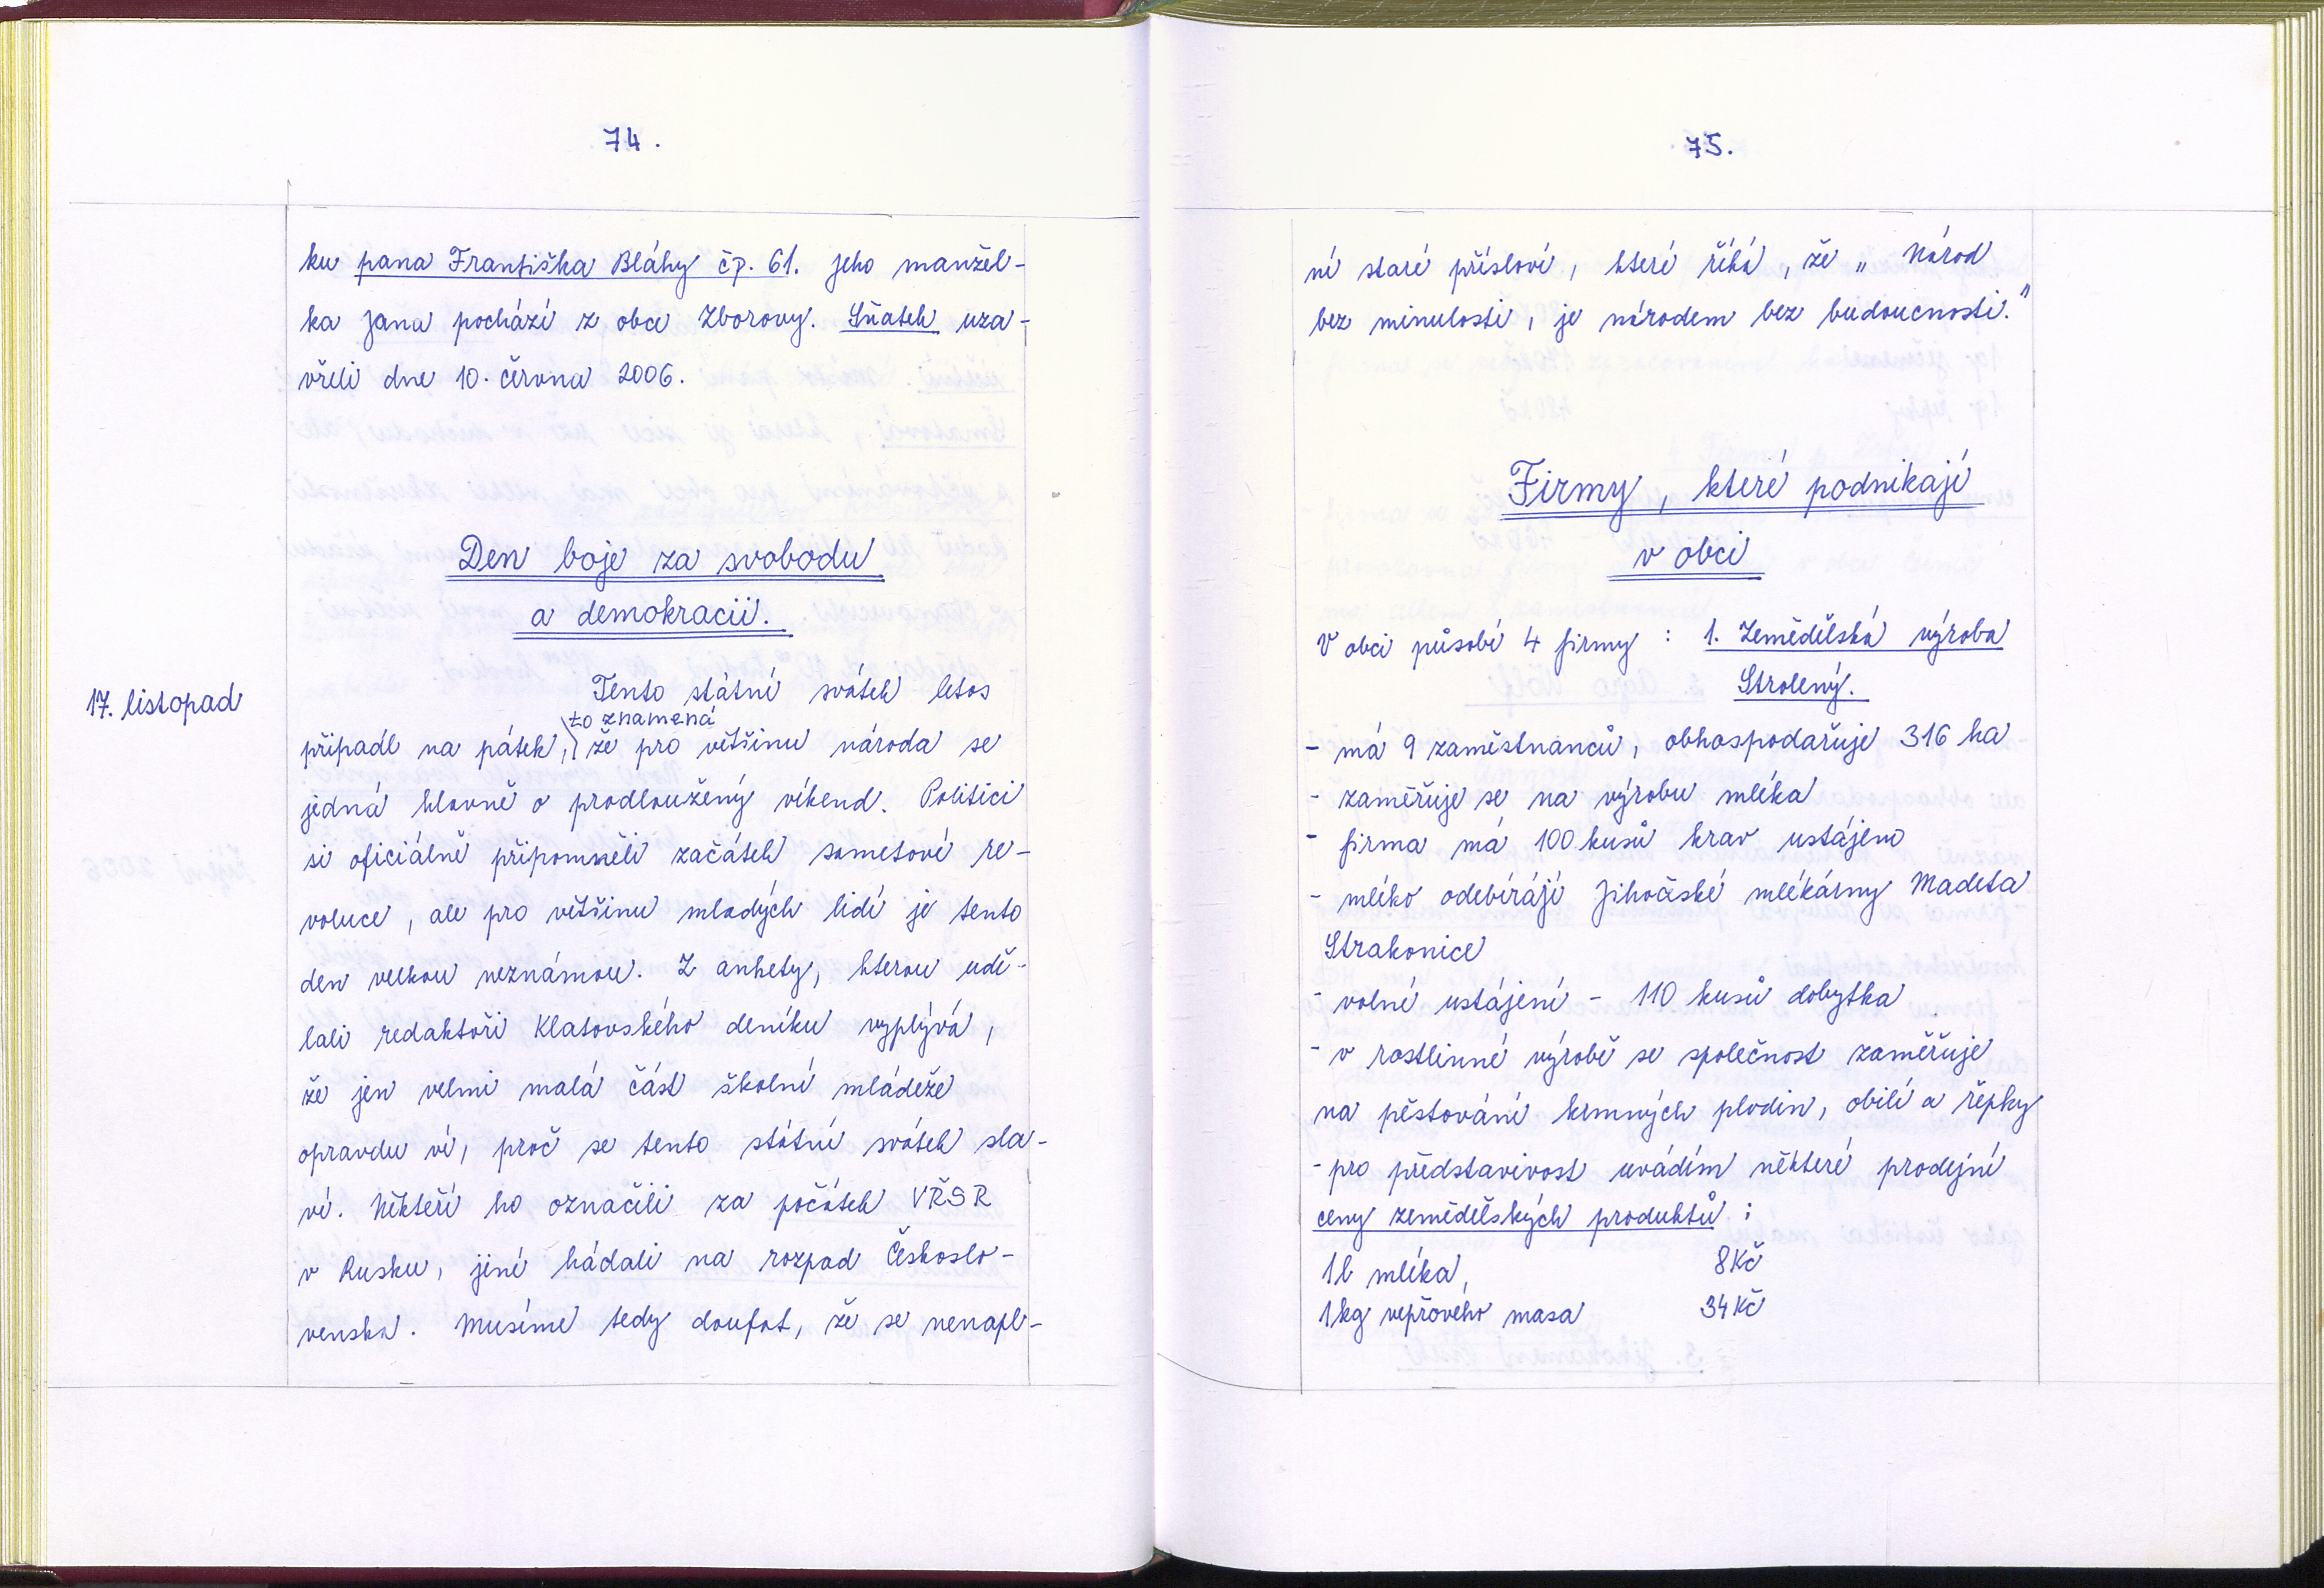 74.
ku pana Františka Bláhy čp. 61. jeho manžel-
ka Jana pochází z obce Zborovy. Sňatek uza-
vřeli dne 10. června 2006.
Den boje za svobodu
a demokracii.
17. listopad
Tento státní svátek letos
to znamená
připadl na pátek, že pro většinu národa se
jedná hlavně o prodloužený víkend. Politici
si oficiálně připomněli začátek sametové re-
voluce, ale pro většinu mladých lidí je tento
den velkou neznámou. Z ankety, kterou udě-
lali redaktoři Klatovského deníku vyplývá,
že jen velmi malá část školní mládeže
opravdu ví, proč se tento státní svátek sla-
ví. Někteří ho označili za počátek VŘSR
v Rusku, jiní hádali na rozpad Českoslo-
venska. Musíme tedy doufat, že se nenapl-
75.
ní staré přísloví, které říká, že „ Národ
bez minulosti, je národem bez budoucnosti."
Firmy, které podnikají
v obci
V obci působí 4 firmy : 1. Zemědělská výroba
Strolený.
- má 9 zaměstnanců, obhospodařuje 316 ha
- zaměřuje se na výrobu mléka
- firma má 100 kusů krav ustájeno
- mléko odebírájí Jihočeské mlékárny Madeta
Strakonice
- volné ustájení - 110 kusů dobytka
- v rostlinné výrobě se společnost zaměřuje
na pěstování krmných plodin, obilí a řepky
- pro představivost uvádím některé prodejní
ceny zemědělských produktů :
1l mléka, 8Kč
1kg vepřového masa 34Kč